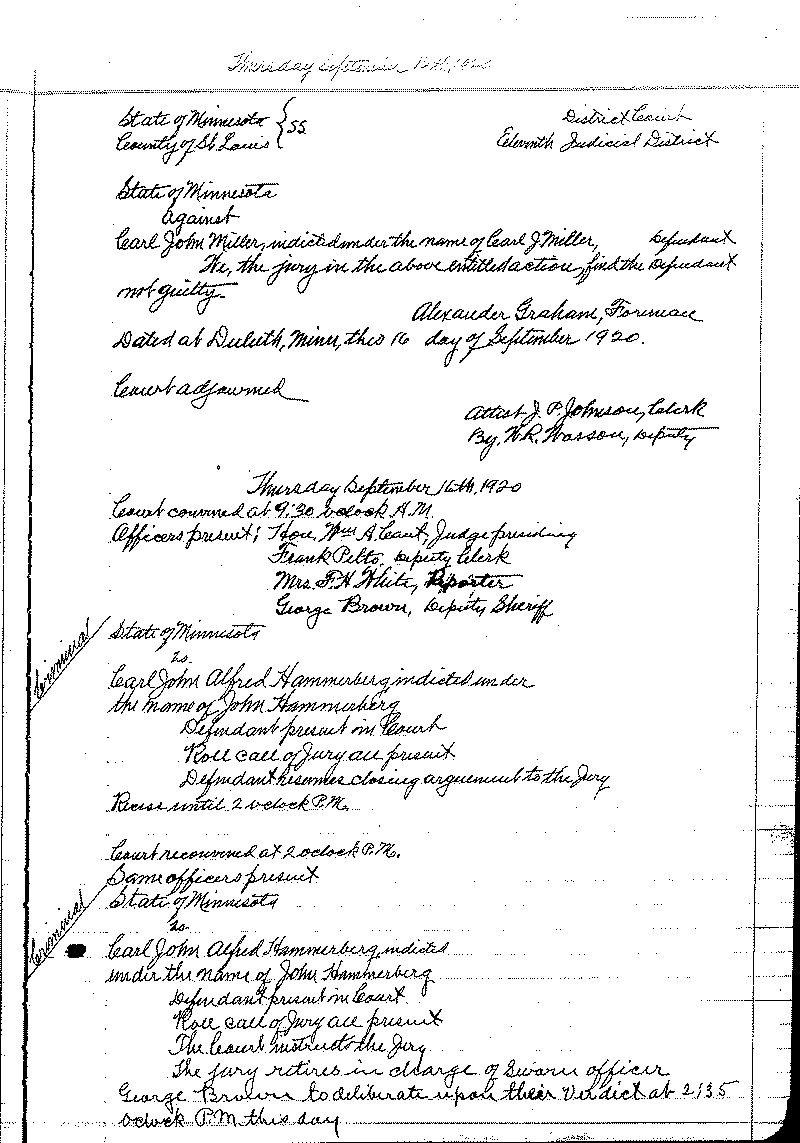 Thursday September 16th, 1920
State of Minnesota } SS.
County of St. Louis
District Court
Eleventh Judicial District
State of Minnesota
against
Carl John Miller, indicted under the name of Carl J Miller, Defendant
We, the jury in the above entitled action, find the Defendant
not guilty.
Alexander Graham, Foreman
Dated at Duluth, Minn, this 16 day of September 1920.
Court adjourned
Attest J. P. Johnson, Clerk
By, W.R. Wasson, Deputy
Thursday September 16th, 1920
Court convened at 9:30 oclock A.M.
Officers present; Hon. Wm A. Cant, Judge presiding
Frank Pelto, Deputy Clerk
Mrs. F. H. White, Reporter
George Brown, Deputy Sheriff
Criminal
State of Minnesota
vs.
Carl John Alfred Hammerberg, indicted under
the name of John Hammerberg
Defendant present in Court
Roll call of Jury all present
Defendant resumes closing arguement to the Jury
Recess until 2 oclock P.M.
Court reconvened at 2 oclock P.M.
Same officers present
Criminal
State of Minnesota
vs.
Carl John Alfred Hammerberg, indicted
under the name of John Hammerberg
Defendant present in Court
Roll call of Jury all present
The Court instructs the Jury
The jury retires in charge of sworn officer
George Brown to deliberate upon their verdict at 2:35
oclock P.M. this day